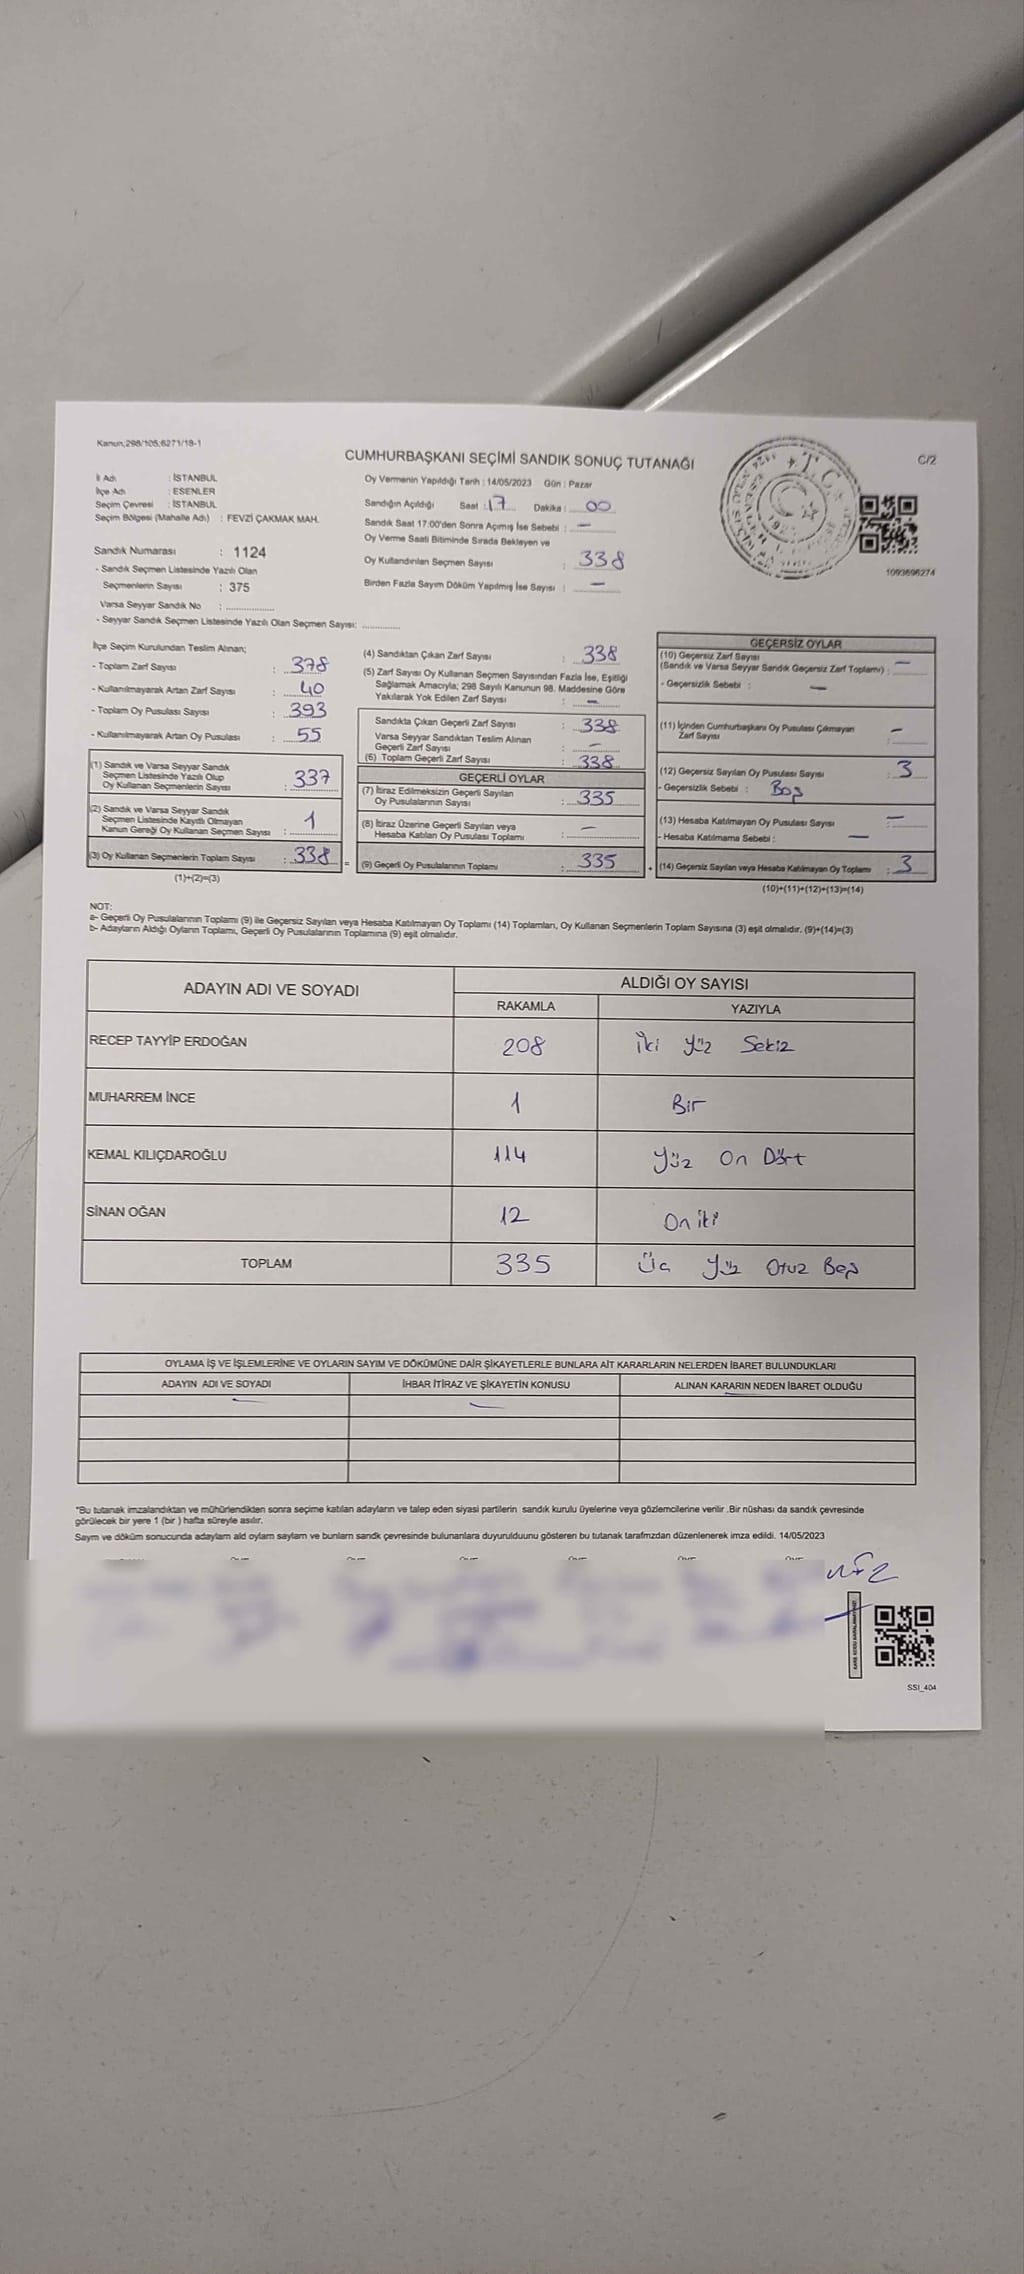 Kanun;298/105;6271/18-1
CUMHURBAŞKANI SEÇİMİ SANDIK SONUÇ TUTANAĞI
C/2
İl Adı : İSTANBUL
İlçe Adı : ESENLER
Seçim Çevresi : İSTANBUL
Seçim Bölgesi (Mahalle Adı) : FEVZİ ÇAKMAK MAH.
Sandık Numarası : 1124
- Sandık Seçmen Listesinde Yazılı Olan
Seçmenlerin Sayısı : 375
Varsa Seyyar Sandık No : ............
- Seyyar Sandık Seçmen Listesinde Yazılı Olan Seçmen Sayısı: ............
Oy Vermenin Yapıldığı Tarih : 14/05/2023 Gün : Pazar
Sandığın Açıldığı Saat : 17 Dakika : 00
Sandık Saat 17:00'den Sonra Açımış İse Sebebi : —
Oy Verme Saati Bitiminde Sırada Bekleyen ve
Oy Kullandırılan Seçmen Sayısı : 338
Birden Fazla Sayım Döküm Yapılmış İse Sayısı : —
1093696274
İlçe Seçim Kurulundan Teslim Alınan;
- Toplam Zarf Sayısı : 378
- Kullanılmayarak Artan Zarf Sayısı : 40
- Toplam Oy Pusulası Sayısı : 393
- Kullanılmayarak Artan Oy Pusulası : 55
(1) Sandık ve Varsa Seyyar Sandık
Seçmen Listesinde Yazılı Olup
Oy Kullanan Seçmenlerin Sayısı : 337
(2) Sandık ve Varsa Seyyar Sandık
Seçmen Listesinde Kayıtlı Olmayan
Kanun Gereği Oy Kullanan Seçmen Sayısı : 1
(3) Oy Kullanan Seçmenlerin Toplam Sayısı : 338
(1)+(2)=(3)
(4) Sandıktan Çıkan Zarf Sayısı : 338
(5) Zarf Sayısı Oy Kullanan Seçmen Sayısından Fazla İse, Eşitliği
Sağlamak Amacıyla; 298 Sayılı Kanunun 98. Maddesine Göre
Yakılarak Yok Edilen Zarf Sayısı : —
Sandıkta Çıkan Geçerli Zarf Sayısı : 338
Varsa Seyyar Sandıktan Teslim Alınan
Geçerli Zarf Sayısı : —
(6) Toplam Geçerli Zarf Sayısı : 338
GEÇERLİ OYLAR
(7) İtiraz Edilmeksizin Geçerli Sayılan
Oy Pusulalarının Sayısı : 335
(8) İtiraz Üzerine Geçerli Sayılan veya
Hesaba Katılan Oy Pusulası Toplamı : —
= (9) Geçerli Oy Pusulalarının Toplamı : 335 +
GEÇERSİZ OYLAR
(10) Geçersiz Zarf Sayısı
(Sandık ve Varsa Seyyar Sandık Geçersiz Zarf Toplamı) : —
- Geçersizlik Sebebi : —
(11) İçinden Cumhurbaşkanı Oy Pusulası Çıkmayan
Zarf Sayısı : —
(12) Geçersiz Sayılan Oy Pusulası Sayısı : 3
- Geçersizlik Sebebi : Boş
(13) Hesaba Katılmayan Oy Pusulası Sayısı : —
- Hesaba Katılmama Sebebi : —
(14) Geçersiz Sayılan veya Hesaba Katılmayan Oy Toplamı : 3
(10)+(11)+(12)+(13)=(14)
NOT:
a- Geçerli Oy Pusulalarının Toplamı (9) ile Geçersiz Sayılan veya Hesaba Katılmayan Oy Toplamı (14) Toplamları, Oy Kullanan Seçmenlerin Toplam Sayısına (3) eşit olmalıdır. (9)+(14)=(3)
b- Adayların Aldığı Oyların Toplamı, Geçerli Oy Pusulalarının Toplamına (9) eşit olmalıdır.
ADAYIN ADI VE SOYADI ALDIĞI OY SAYISI
RAKAMLA YAZIYLA
RECEP TAYYİP ERDOĞAN 208 İki Yüz Sekiz
MUHARREM İNCE 1 Bir
KEMAL KILIÇDAROĞLU 114 Yüz On Dört
SİNAN OĞAN 12 On iki
TOPLAM 335 Üç Yüz Otuz Beş
OYLAMA İŞ VE İŞLEMLERİNE VE OYLARIN SAYIM VE DÖKÜMÜNE DAİR ŞİKAYETLERLE BUNLARA AİT KARARLARIN NELERDEN İBARET BULUNDUKLARI
ADAYIN ADI VE SOYADI İHBAR İTİRAZ VE ŞİKAYETİN KONUSU ALINAN KARARIN NEDEN İBARET OLDUĞU
*Bu tutanak imzalandıktan ve mühürlendikten sonra seçime katılan adayların ve talep eden siyasi partilerin sandık kurulu üyelerine veya gözlemcilerine verilir .Bir nüshası da sandık çevresinde
görülecek bir yere 1 (bir ) hafta süreyle asılır.
Sayım ve döküm sonucunda adaylarn ald oylarn saylarn ve bunlarn sandk çevresinde bulunanlara duyurulduunu gösteren bu tutanak tarafmzdan düzenlenerek imza edildi. 14/05/2023
SSI_404